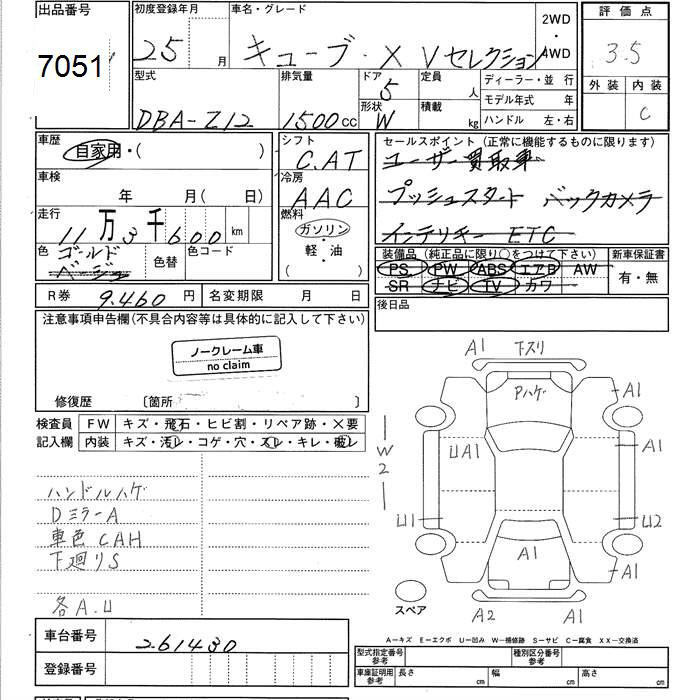 出品番号 初度登録年月 車名・グレード 2WD・4WD 評価点
7051 25 月 キューブ・X Vセレクション 3.5
外装 内装
C
型式 排気量 ドア 定員 ディーラー・並行
5 人
モデル年式 年
DBA-Z12 1500 cc 形状 W 積載 kg ハンドル 左・右
車歴 シフト セールスポイント (正常に機能するものに限ります)
自家用・( ) C.AT ユーザー買取車
車検 冷房 プッシュスタート バックカメラ
年 月( 日) AAC
走行 燃料 インテリキー ETC
11万3千600 km ガソリン
軽・油
( )
色 ゴールド 色替 色コード
ベージュ
装備品 (純正品に限り○をつけて下さい) 新車保証書
PS PW ABS エアB AW 有・無
SR ナビ TV カワ
R券 9.460 円 名変期限 月 日
後日品
注意事項申告欄(不具合内容等は具体的に記入して下さい)
ノークレーム車
no claim
修復歴 〔箇所 〕
検査員 FW キズ・飛石・ヒビ割・リペア跡・×要
記入欄 内装 キズ・汚レ・コゲ・穴・スレ・キレ・破レ
ハンドルハゲ
DミラーA
車色CAH
下廻りS
各A.U
A1 下スリ
Pハゲ A1
W2 UA1 A1
U1 U2
A1 A1
スペア A2 A1
A-キズ E-エクボ U-凹み W-補修跡 S-サビ C-腐食 XX-交換済
車台番号 261430
登録番号
型式指定番号 参考 種別区分番号 参考
車庫証明用 参考 長さ cm 幅 cm 高さ cm